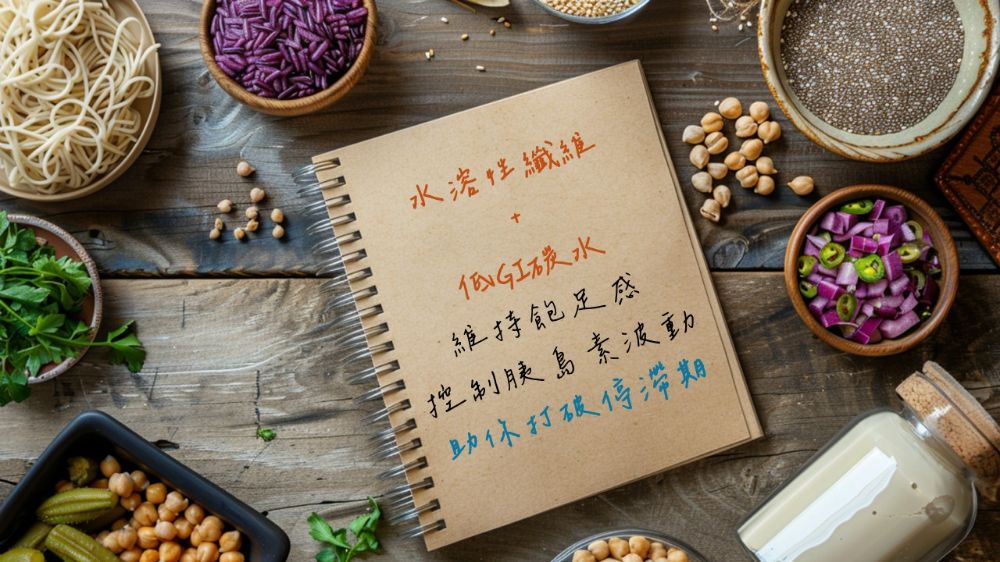 水溶性纖維
+
低GI碳水
維持飽足感
控制胰島素波動
助你打破停滯期